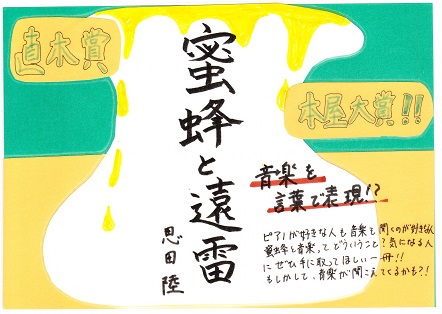 直木賞
本屋大賞!!
蜜蜂と遠雷
恩田陸
音楽を
言葉で表現!?
ピアノが好きな人も音楽を聞くのが好きな人も
蜜蜂と音楽ってどういうこと？気になる人
にぜひ手に取ってほしい一冊!!
もしかして、音楽が聞こえてくるかも?!